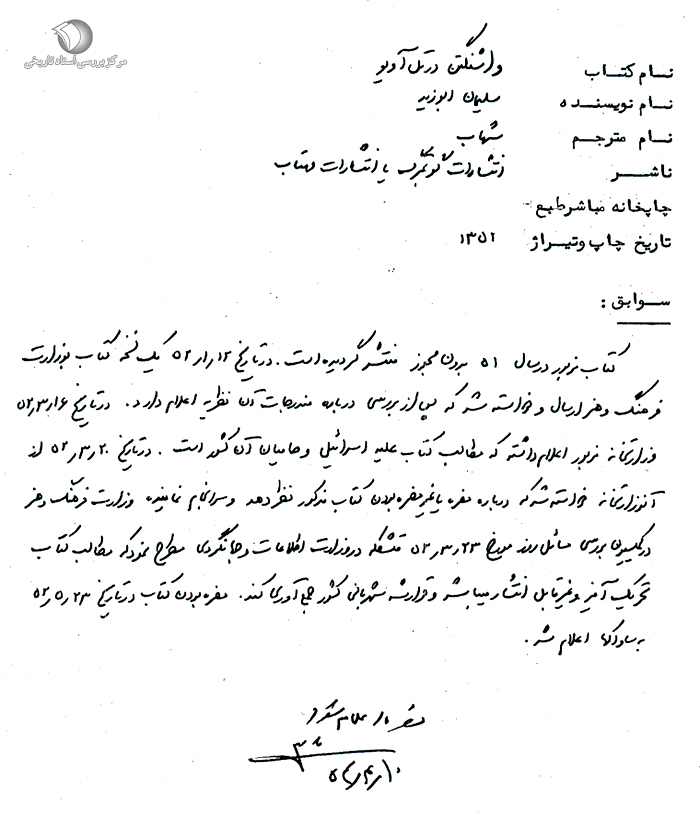 مرکز بررسی اسناد تاریخی
نام کتاب واشنگتن در تل آویو
نام نویسنده سلیمان ابوزید
نام مترجم شهاب
ناشر انتشارات گوتمبرگ یا انتشارات مهتاب
چاپخانه مباشرطبع -
تاریخ چاپ وتیراژ ۱۳۵۲
سوابق :
کتاب مزبور در سال ۵۱ بدون مجوز منتشر گردیده است . در تاریخ ۵۲٫۱٫۱۲ یک نسخه کتاب بوزارت
فرهنگ و هنر ارسال و خواسته شد که پس از بررسی درباره مندرجات آن نظریه اعلام دارد . در تاریخ ۵۲٫۳٫۱۶
وزارتخانه مزبور اعلام داشته که مطالب کتاب علیه اسرائیل و حامیان آن کشور است . در تاریخ ۵۲٫۳٫۲۰ از
آنوزارتخانه خواسته شد که درباره مضره یا غیرمضره بودن کتاب مذکور نظر دهد و سرانجام نماینده وزارت فرهنگ و هنر
در کمیسیون بررسی مسائل روز مورخ ۵۲٫۳٫۲۳ متشکله در وزارت اطلاعات و جهانگردی مطرح نمود که مطالب کتاب
تحریک آمیز و غیرقابل انتشار میباشد و قرار شد شهربانی کشور جمع آوری کند . مضره بودن کتاب در تاریخ ۵۲٫۵٫۲۳
به ساواکها اعلام شد .